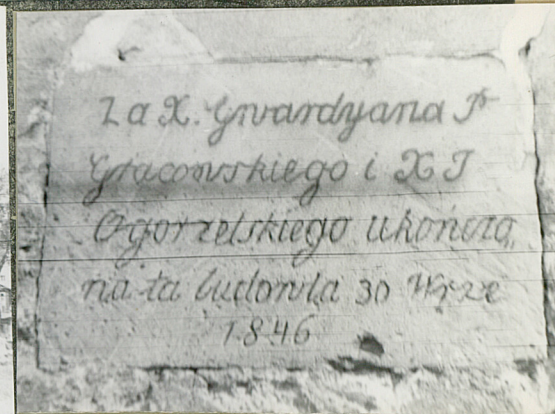 Za X. Gwardyana P
Głacowskiego i X J
Ogorzelskiego ukończo
na ta budowla 30 Wrze
1846